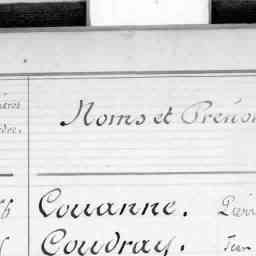 Noms et Préno
dre.
Couanne. Pierr
Coudray. Jean